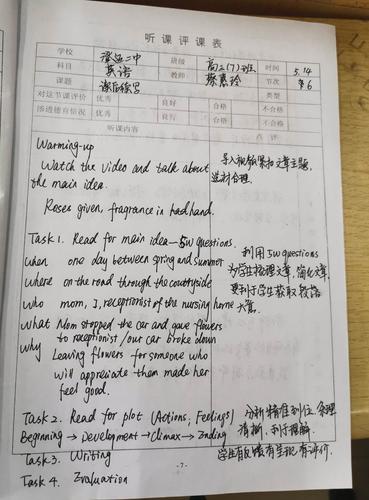 听课评课表
学校 澄迈二中 班级 高二(7)班 时间 5.14
科目 英语 教师 蔡惠玲 节次 第6
课题 读后续写 类型
对这节课评价 优秀 良好 合格 不合格
渗透德育情况 优秀 良好 合格 不合格
听课内容 点评
Warming-up
Watch the video and talk about
the main idea.
Roses given, fragrance in hand.
导入视频紧扣文章主题,
选材合理.
Task 1. Read for main idea—5W questions.
when one day between spring and summer
where on the road through the countryside
who mom, I, receptionist of the nursing home
what Mom stopped the car and gave flowers
to receptionist / our car broke down
why Leaving flowers for someone who
will appreciate them made her
feel good.
利用5W questions
为学生梳理文章,简化文章
更利于学生获取
大意.
Task 2. Read for plot (Actions, Feelings)
Beginning → Development → Climax → Ending
分析精准到位 条理
清晰,利于理解.
Task 3. Writing
学生有反馈有呈现有评价.
Task 4. Evaluation
-7-